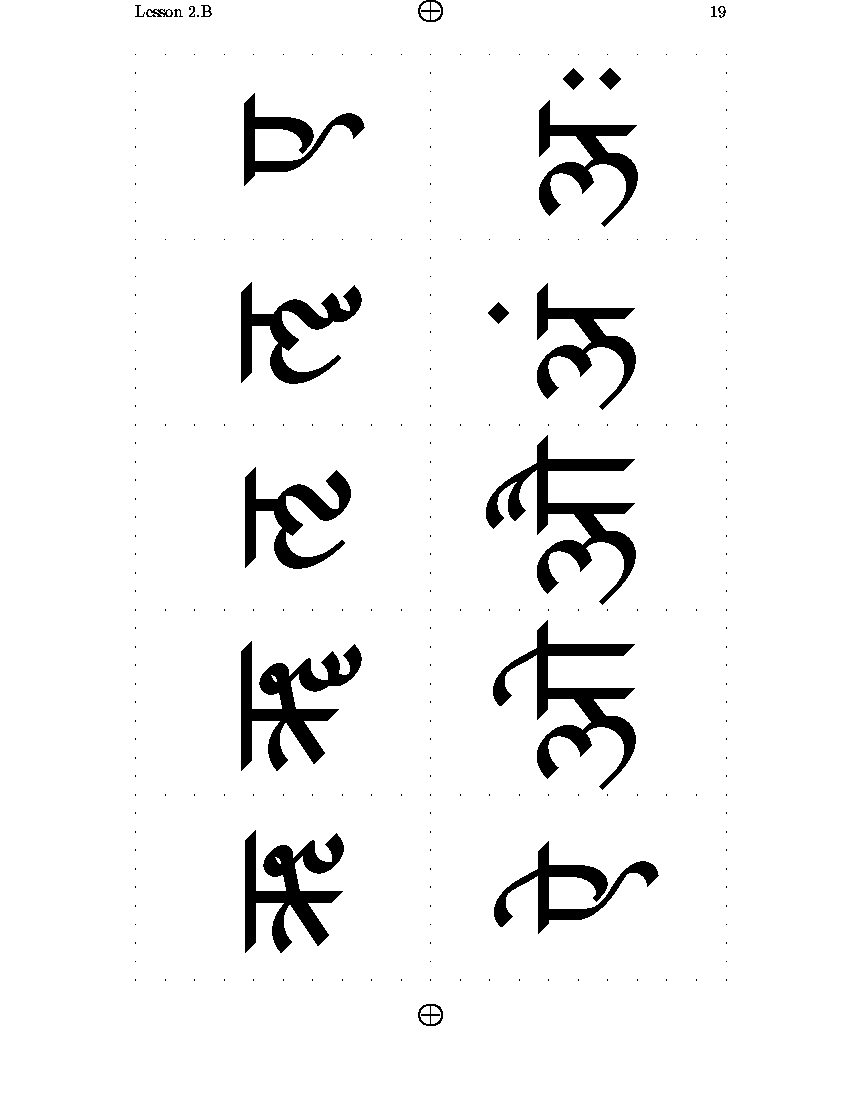 Lesson 2.B 19
ऋ ॠ ऌ ॡ ए
ऐ ओ औ अं अः